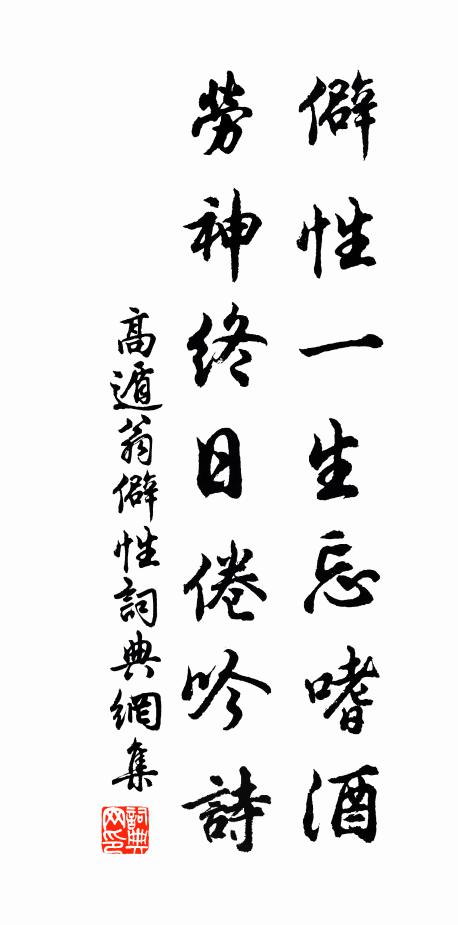 僻性一生忘嗜酒
勞神終日倦吟詩
高遁翁僻性詞典網集
詞典網印